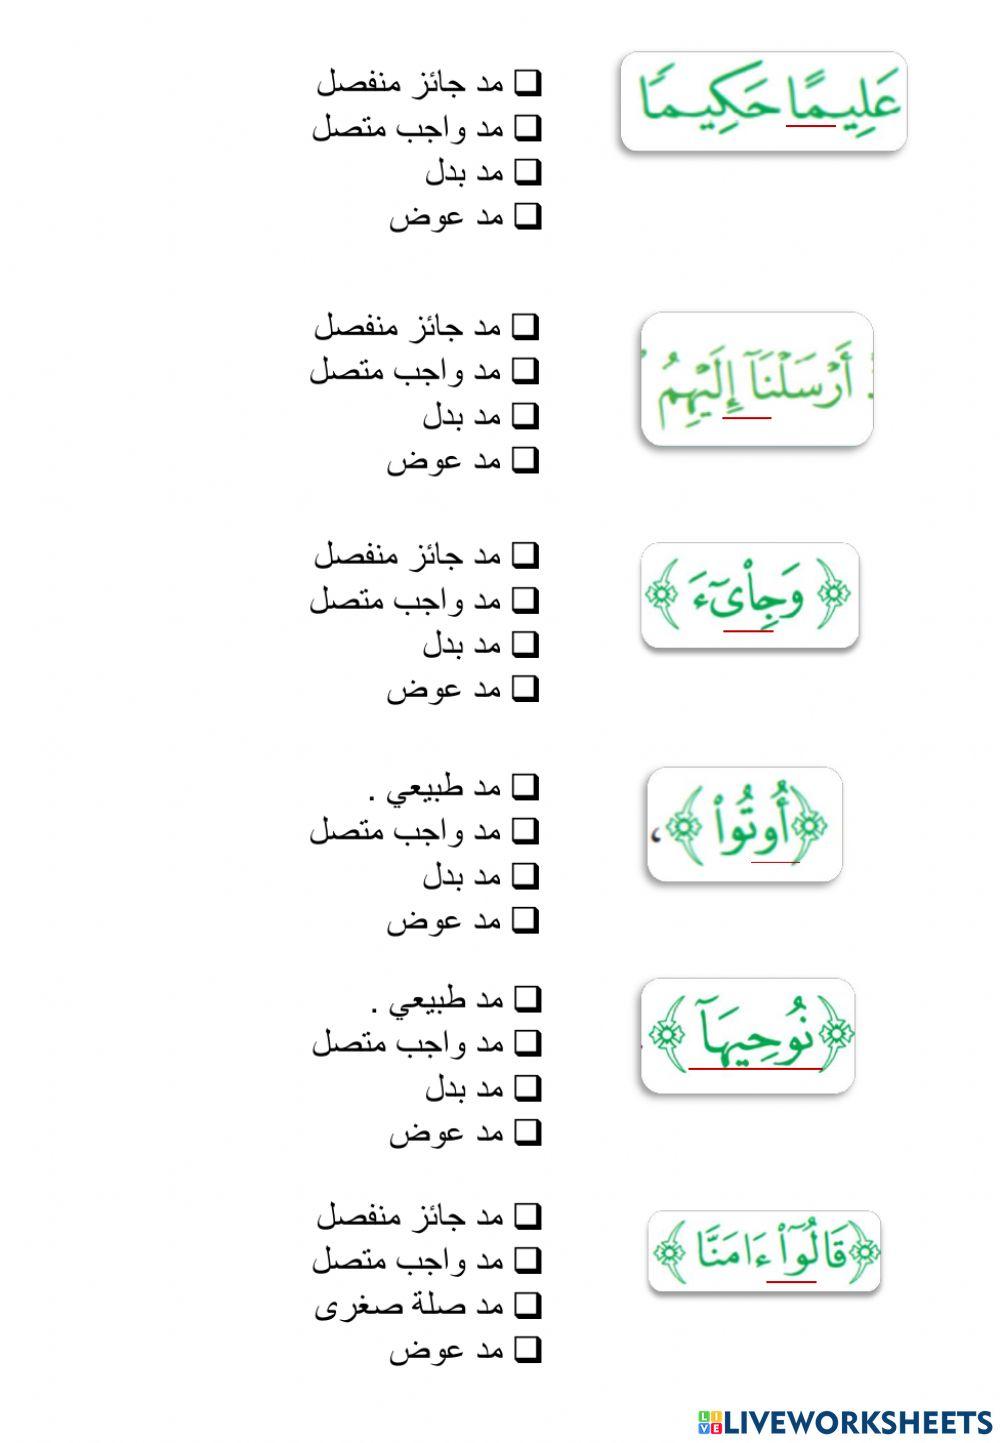 عَلِيمًا حَكِيمًا
❑ مد جائز منفصل
❑ مد واجب متصل
❑ مد بدل
❑ مد عوض
أَرْسَلْنَآ إِلَيْهِمُ
❑ مد جائز منفصل
❑ مد واجب متصل
❑ مد بدل
❑ مد عوض
﴿ وَجِا۟ىٓءَ ﴾
❑ مد جائز منفصل
❑ مد واجب متصل
❑ مد بدل
❑ مد عوض
﴿أُوتُوا۟ ﴾،
❑ مد طبيعي .
❑ مد واجب متصل
❑ مد بدل
❑ مد عوض
﴿نُوحِيهَآ ﴾
❑ مد طبيعي .
❑ مد واجب متصل
❑ مد بدل
❑ مد عوض
﴿قَالُوٓا۟ ءَامَنَّا ﴾
❑ مد جائز منفصل
❑ مد واجب متصل
❑ مد صلة صغرى
❑ مد عوض
LIVE LIVEWORKSHEETS